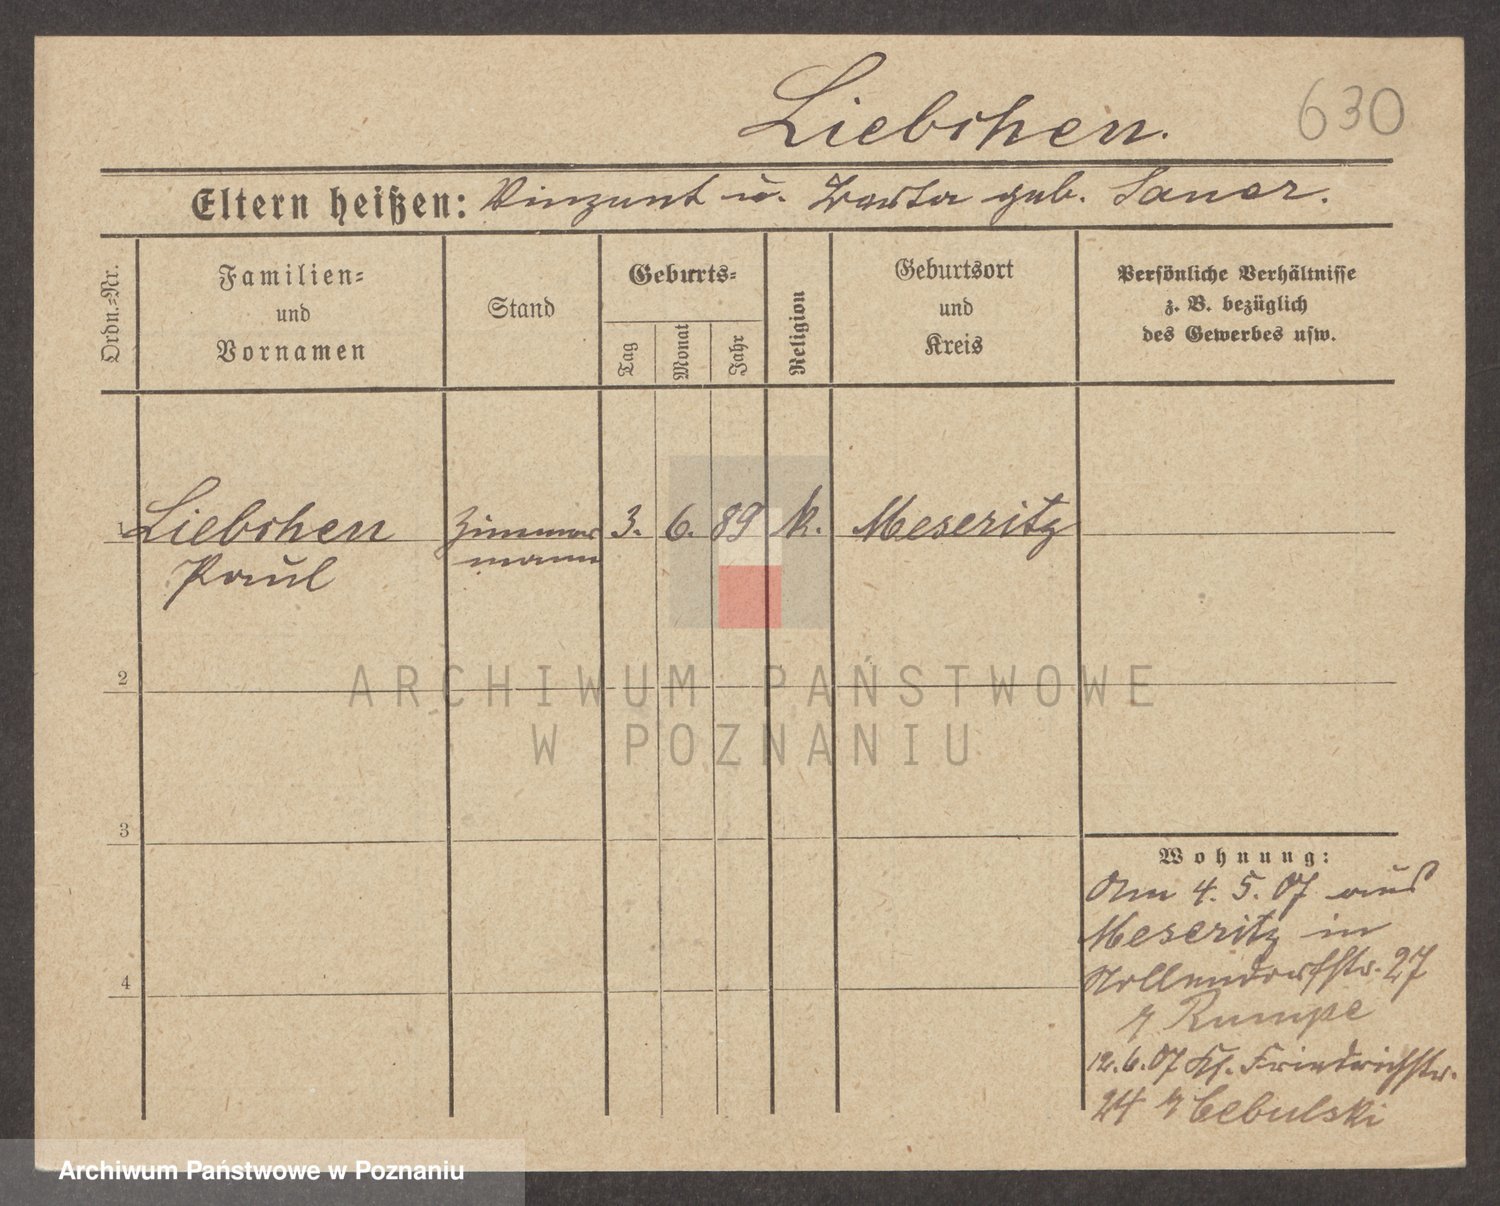 Liebchen.
630
Eltern heißen: Vinzent u. geb. Sauer.
Ordn.-Nr.
Familien-
und
Vornamen
Stand
Geburts-
Tag
Monat
Jahr
Religion
Geburtsort
und
Kreis
Persönliche Verhältnisse
z. B. bezüglich
des Gewerbes usw.
1 Liebchen Zimmer 3. 6. 89 k. Meseritz
Paul mann
2
ARCHIWUM PAŃSTWOWE
W POZNANIU
3
4
Wohnung:
Am 4. 5. 07 aus
Meseritz in
Nollendorfstr. 27
Rumpe
12.6.07 Kf. Friedrichstr.
24 Cebulski
Archiwum Państwowe w Poznaniu